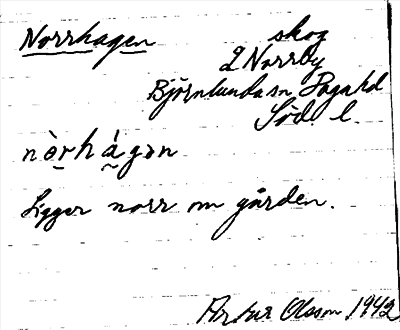 Norrhagen skog
å Norrby
Björnlunda sn Daga hd
Söd l.
nòrhágən
Ligger norr om gården.
Artur Olsson 1942